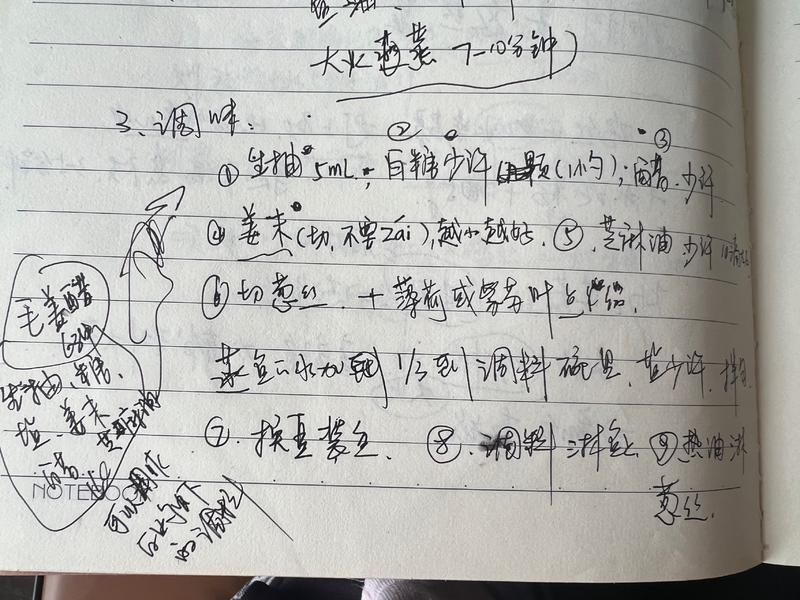 大火 蒸 7-10分钟)
3、调味:
① 生抽 5mL; ② 白糖少许 颗(1小勺); ③ 醋.少许
④ 姜末(切,不要zāi),越小越好. ⑤ 芝麻油 少许
⑥ 切葱丝. + 薄荷或紫苏叶点缀.
蒸鱼的水加到 1/3到 调料碗里, 盐少许, 拌匀
⑦. 换盘装鱼. ⑧. 调料 淋鱼上 ⑨ 热油淋
葱丝.
毛姜醋
生抽、糖、
盐、姜末
芝麻油
可以调成
的调料
NOTEBOOK